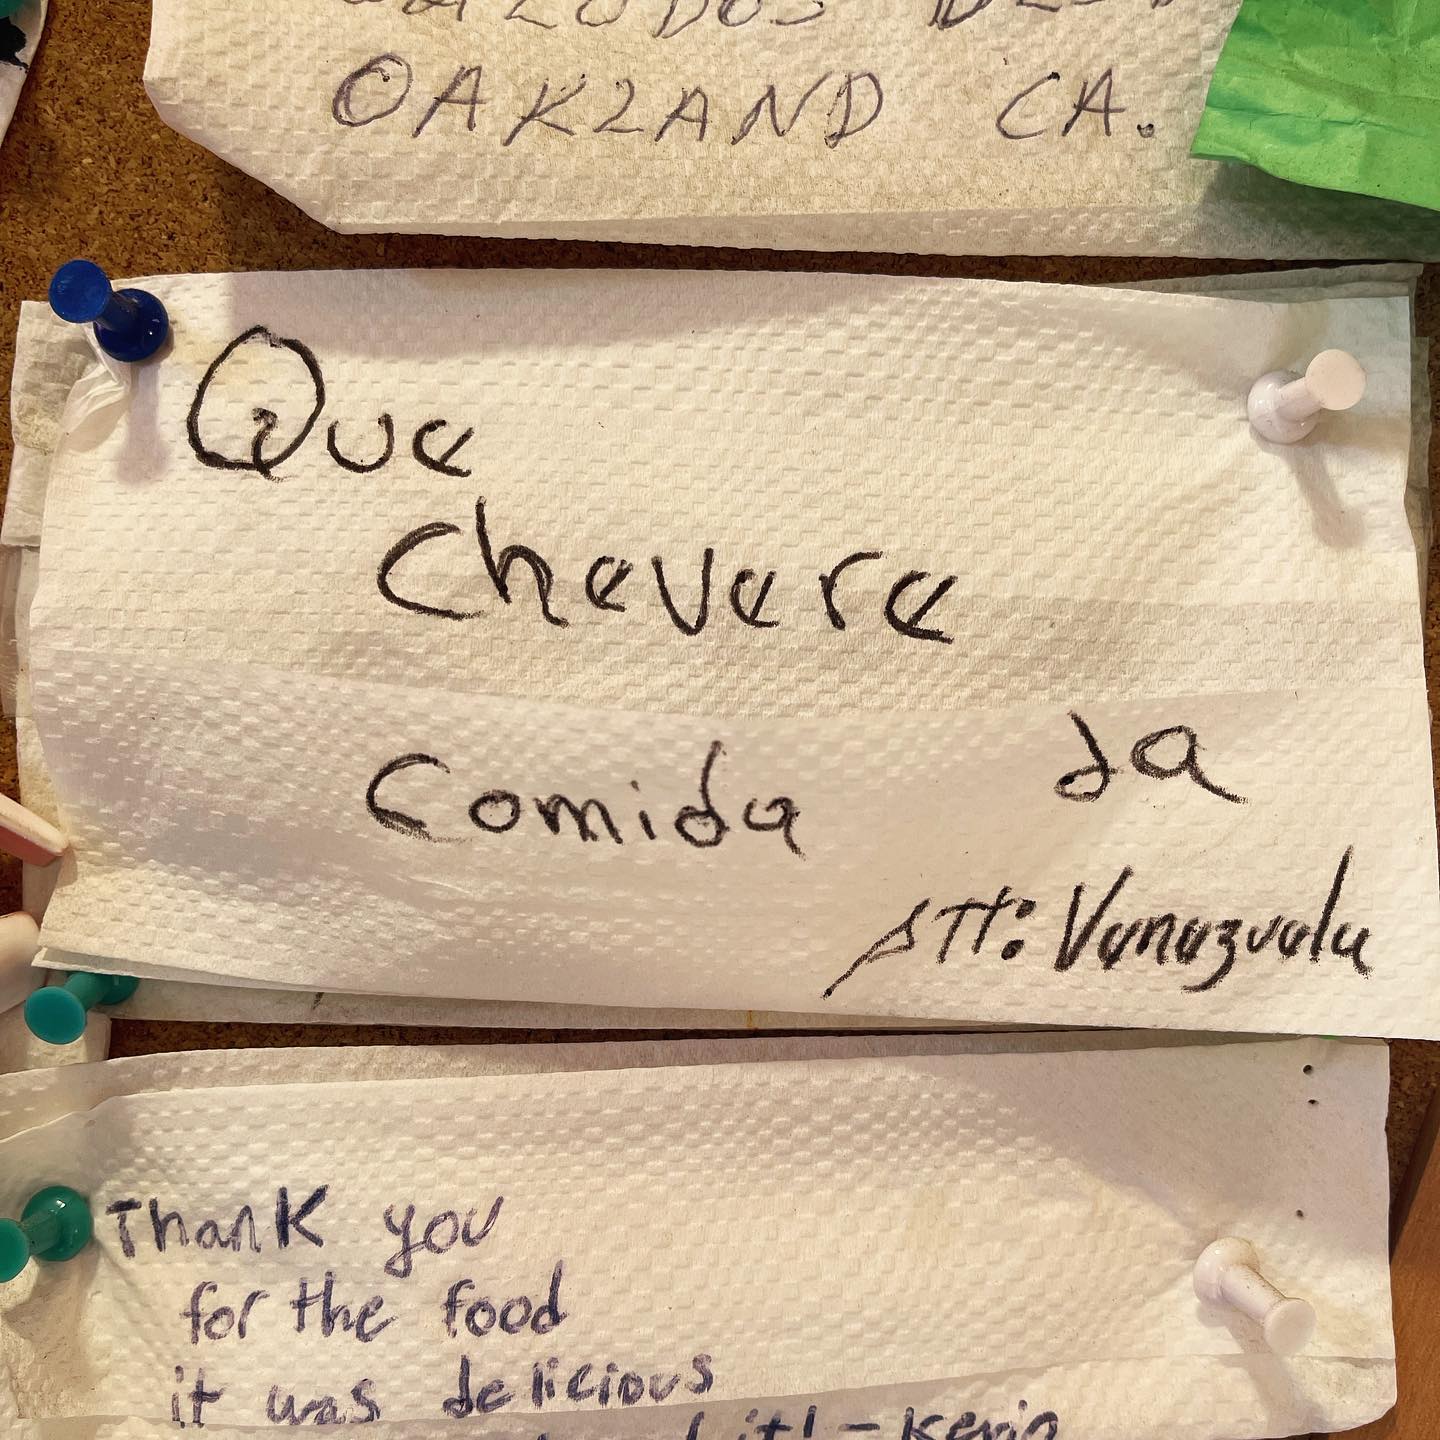 OAKLAND CA.
Que
chevere
Comida Ja
ATT: Venezuela
Thank you
for the food
it was delicious
it! - Kevin